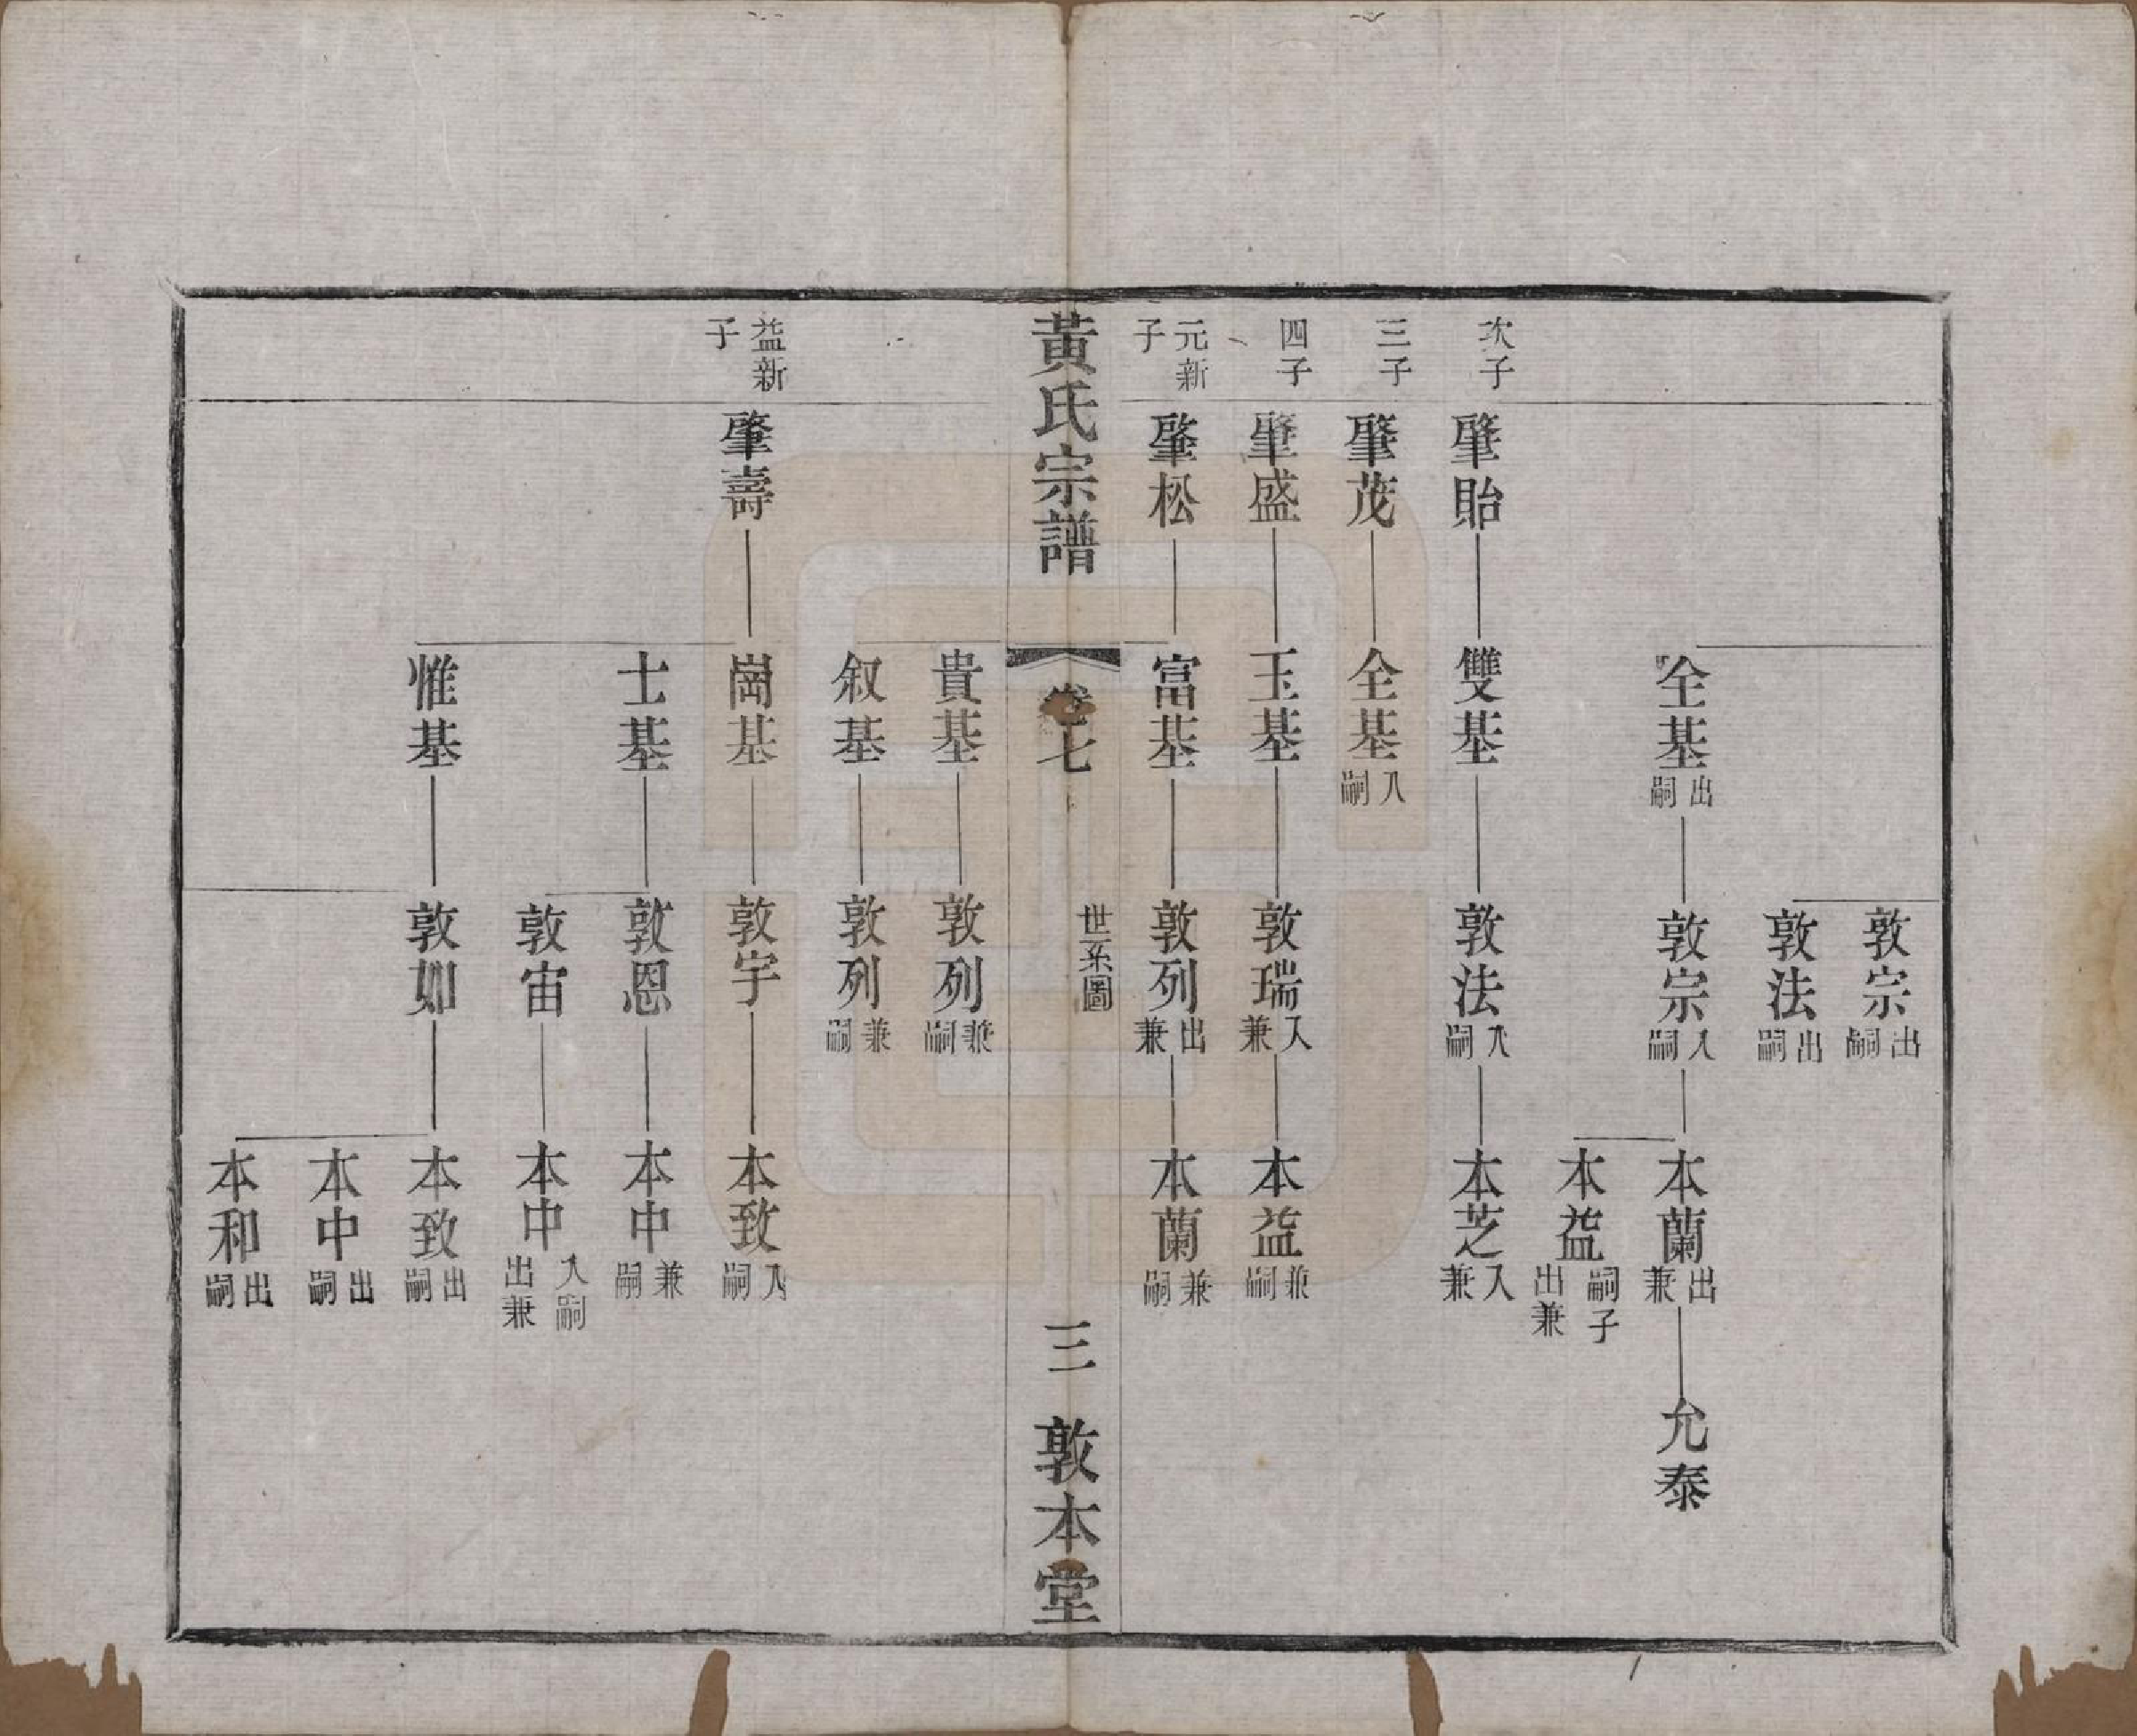 敦宗出嗣
敦法出嗣
全基出嗣
敦宗入嗣
本蘭出兼
允泰
本益嗣子出兼
次子
肇貽
雙基
敦法入嗣
本芝入兼
三子
肇茂
全基入嗣
四子
肇盛
玉基
敦瑞入兼
本益兼嗣
元新子
肇松
富基
敦列出兼
本蘭兼嗣
黃氏宗譜
卷七
世系圖
三
敦本堂
貴基
敦列兼嗣
叙基
敦列兼嗣
益新子
肇壽
崗基
敦宇
本致入嗣
士基
敦恩
本中兼嗣
敦宙
本中入嗣出兼
惟基
敦如
本致出嗣
本中出嗣
本和出嗣